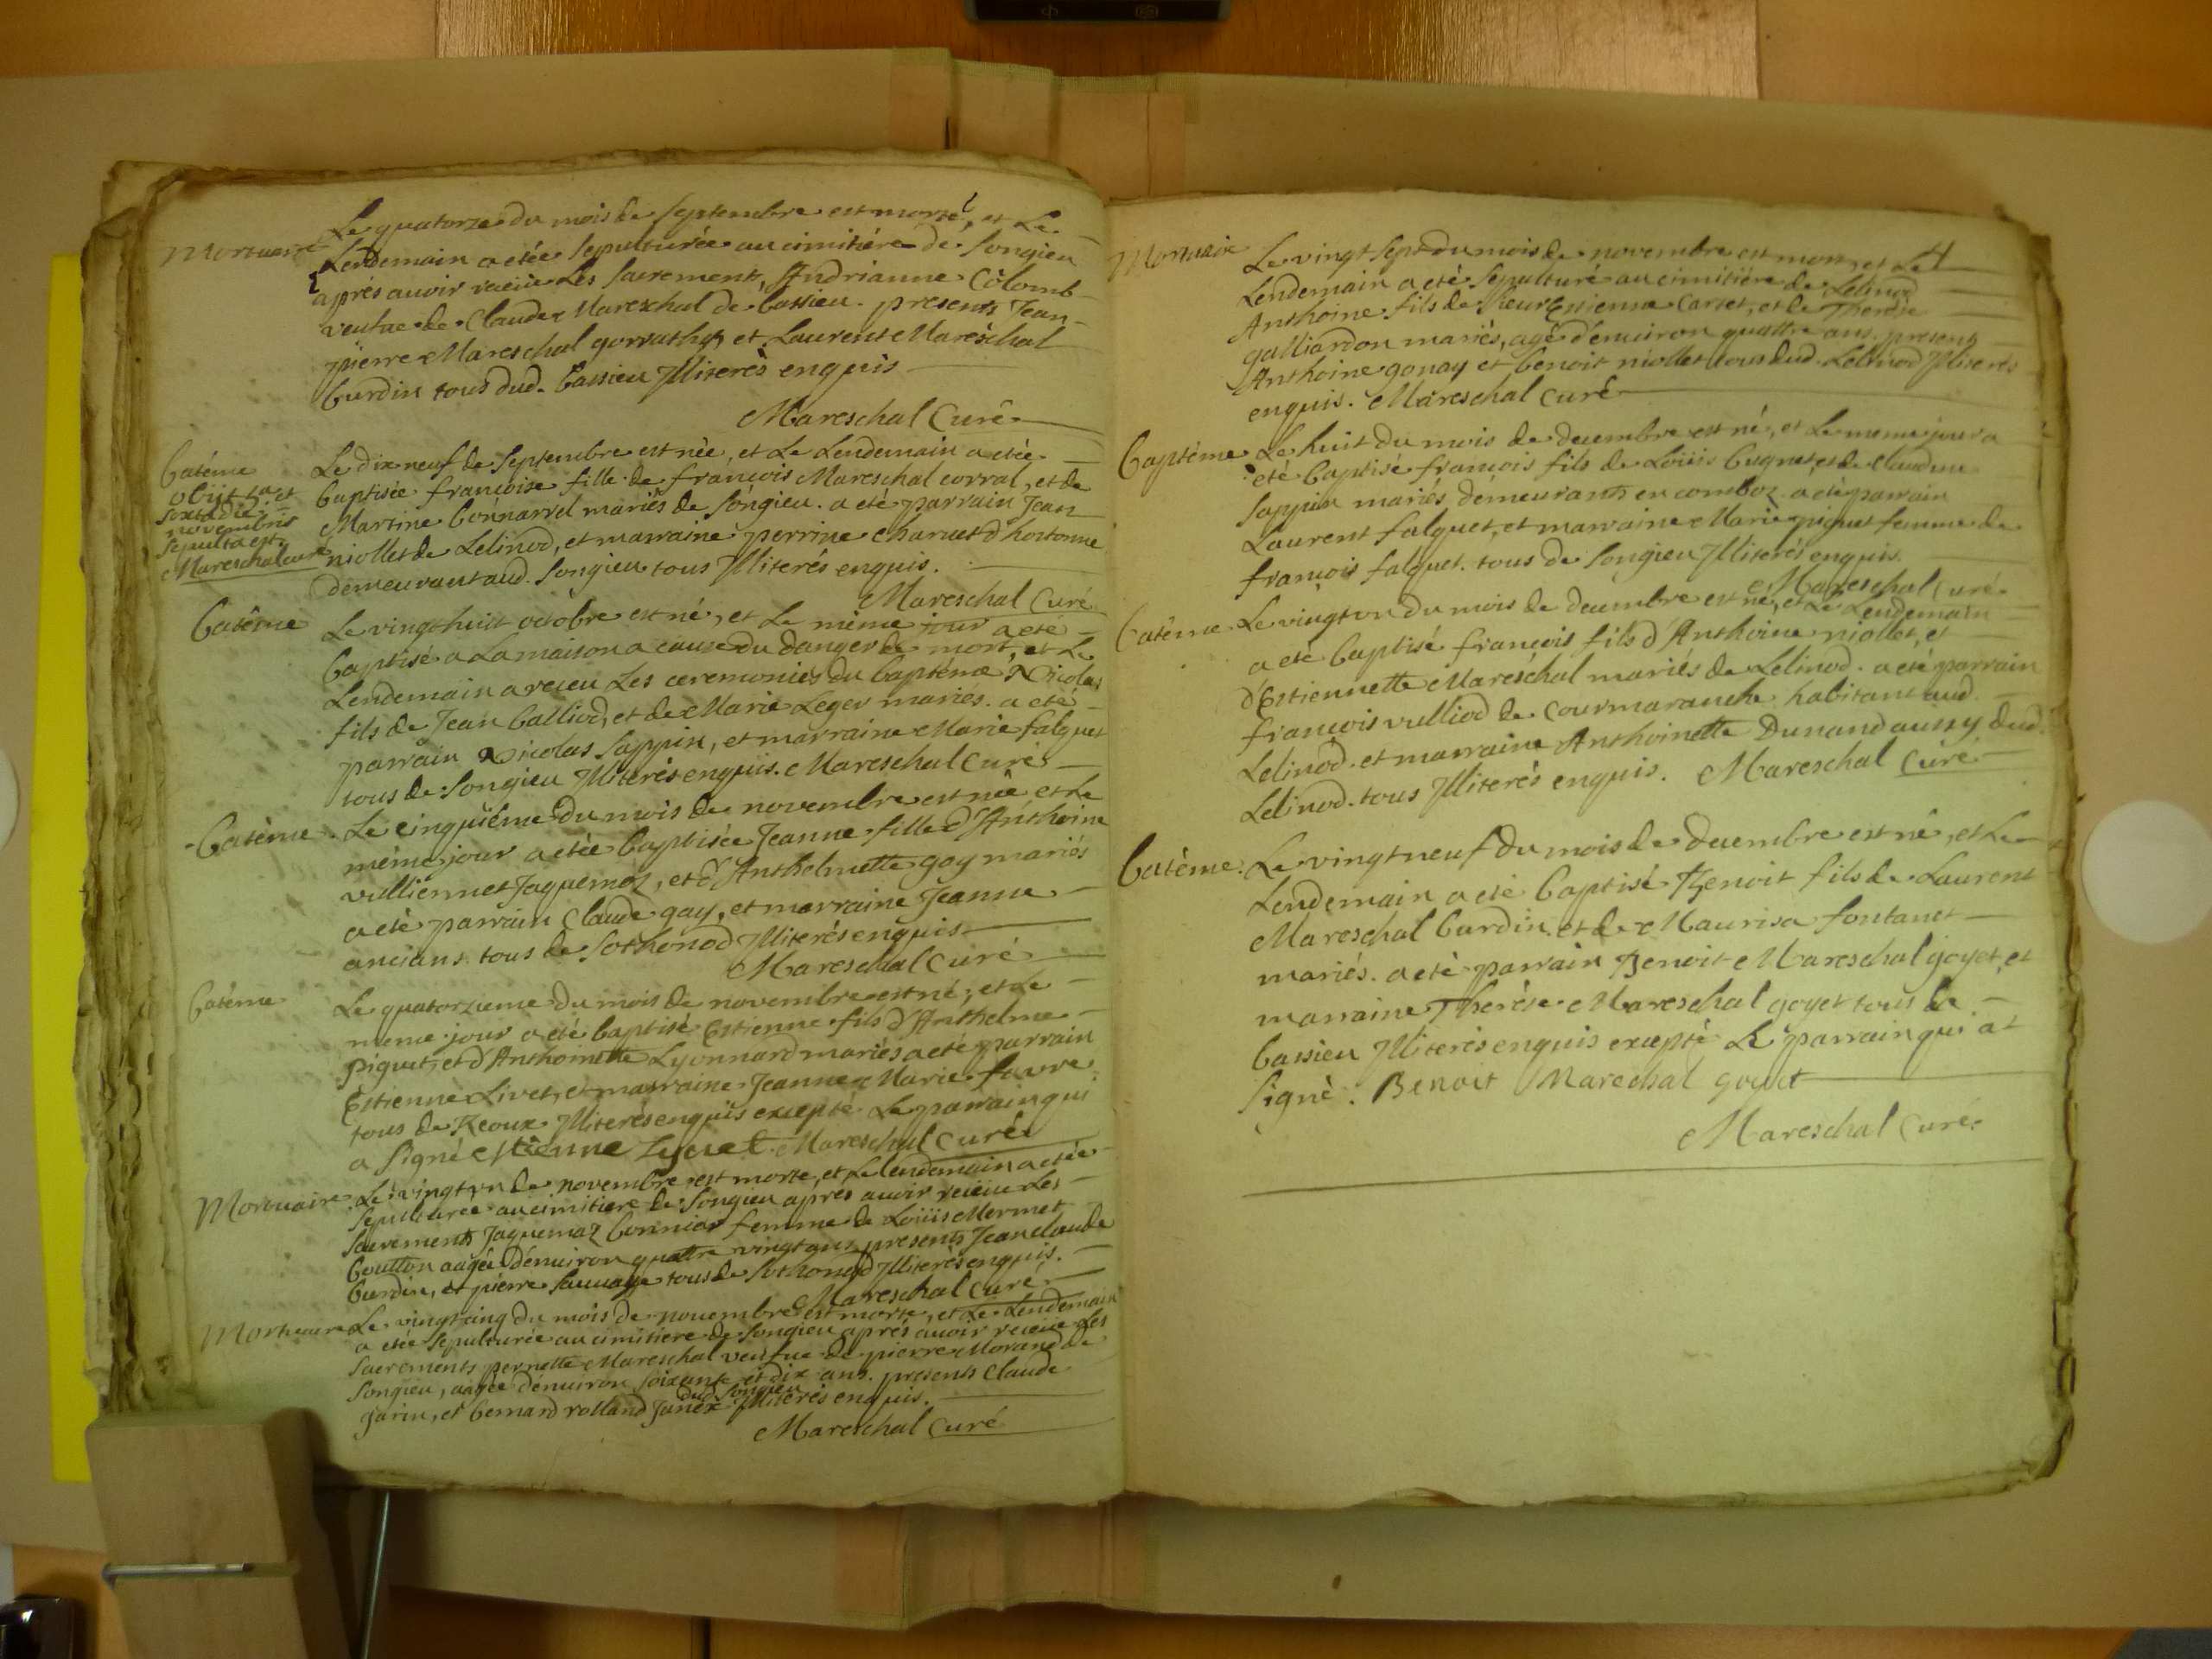 Mortuaire
Le quatorze du mois de septembre est morte, et Le
Lendemain a etée sepulturée au cimitiére de songieu
apres auoir receüe Les sacrements, Andrianne Colomb
veufue de Claude Mareschal de bassieu. presents Jean
pierre Mareschal gorrathy, et Laurent Mareschal
burdin tous dud. bassieu Jlliterès enquis
Mareschal Curé
batéme
obijt 5a et
sexta die
novembris
sepulta est.
Mareschal curé
Le dixneuf de septembre est née, et Le Lendemain a etée
baptisée francoise fille de francois Mareschal corral, et de
Martine bonnarrel mariés de sóngieu. a eté parrain Jean
niollet de Lelinod, et marraine perrine charuet d'hostonne
demeurant aud. songieu tous Jlliterés enquis.
Mareschal Curé
batême
Le vingthuit octobre est né, et Le même jour a eté
baptisé a La maison a cause du danger de mort, et Le
Lendemain a receu Les ceremonies du baptéme Nicolas
fils de Jean balliod, et de Marie Leger mariés. a eté
parrain Nicolas sappin, et marraine Marie falquet
tous de songieu Jlliterés enquis. Mareschal Curé
batéme
Le cinquiéme du mois de novembre est née et Le
méme jour a etée baptisée Jeanne fille d'Anthoine
vulliennet Jaquemoz, et d'Anthelmette goy mariés
a eté parrain Claude gay, et marraine Jeanne
ancians tous de sothonod Jlliterés enquis
Mareschal Curé
batéme
Le quatorzieme du mois de novembre est né, et Le
meme jour a eté baptisé Estienne fils d'Anthelme
piquet, et d'Anthoinette Lyonnard mariés a eté parrain
Estienne Livet, et marraine Jeanne Marie favre
tous de Reoux Jlliterés enquis excepté Le parrain qui
a signé estienne Lyuet. Mareschal Curé
Mortuaire
Le vingt vn de novembre est morte, et Le lendemain a etée
sepulturée au cimitiere de songieu apres auoir receüe Les
sacrements Jaquemaz bonnier femme de Loüis Mermet
boutton aagée d'enuiron quattre vingt ans presents Jean claude
burdin, et pierre sauuage tous de sothonod Jlliterés enquis.
Mareschal Curé
Mortuaire
Le vingt cinq du mois de nouembre est morte, et Le Lendemain
a etée sepulturée au cimitiere de songieu aprés auoir receüe Les
sacrements pernette Mareschal veufue de pierre Morand de
songieu, aagée d'enuiron soixante et dix ans. presents Claude
garin, et bernard rolland Janex dud. songieu Jlliterés enquis.
Mareschal Curé
4
Mortuaire
Le vingt sept du mois de novembre est mort, et Le
Lendemain a eté sepulturé au cimitiére de Lelinod
Anthoine fils de sieur Estienne Carret, et de Therése
galliardon mariés, agé d'enuiron quattre ans. presents
Anthoine gonay et benoit niollet tous dud. Lelinod Jlliterés
enquis. Mareschal Curé
baptème
Le huit du mois de decembre est né, et Le meme jour a
eté baptisé francois fils de Loüis bugnet, et de claudine
sappin mariés demeurants en comboz. a eté parrain
Laurent falquet, et marraine Marie piquet femme de
francois falquet. tous de songieu Jlliterés enquis.
Mareschal Curé
batéme
Le vingt vn du mois de decembre est né, et Le Lendemain
a eté baptisé francois fils d'Anthoine niollet, et
d'Estiennette Mareschal mariés de Lelinod. a eté parrain
francois vulliod de Courmaranche habitant aud.
Lelinod. et marraine Anthoinette Dunand aussy dud.
Lelinod. tous Jlliterés enquis. Mareschal Curé
batéme.
Le vingt neuf du mois de decembre est né, et Le
Lendemain a eté baptisé Benoit fils de Laurent
Mareschal burdin. et de Maurisa fontanet
mariés. a eté parrain Benoit Mareschal goyet, et
marraine Therése Mareschal goyet tous de
bassieu Jlliterés enquis excepté Le parrain qui at
signé. Benoit Marechal goyet
Mareschal Curé